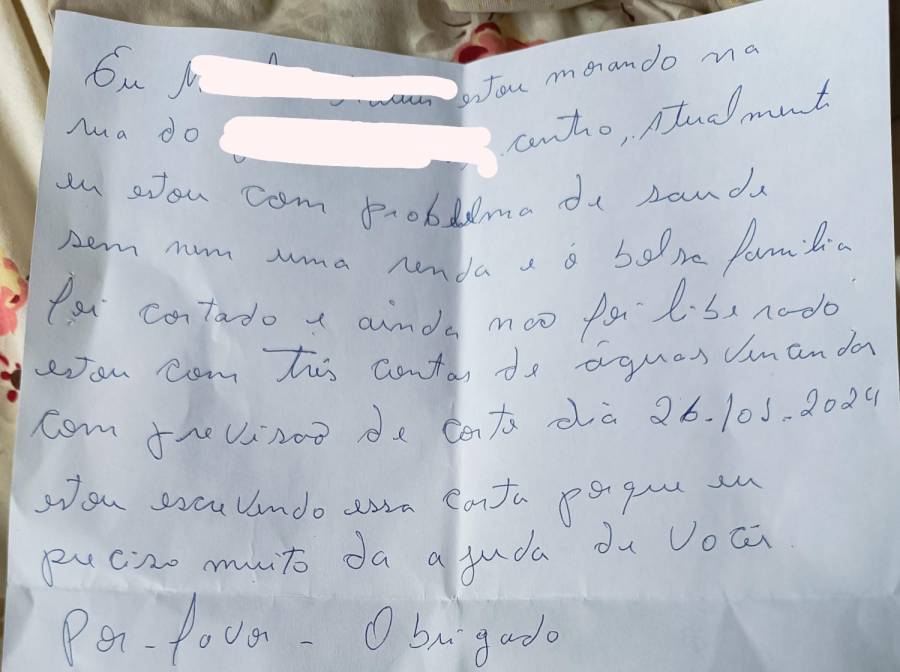 Eu estou morando na
rua do centro, Atualmente
eu estou com problelma de saude
sem nem uma renda e o bolsa familia
foi cortado e ainda nao foi liberado
estou com três contas de águas vencendas
com previsão de corte dia 26-/01-2024
estou escrevendo essa carta porque eu
preciso muito da ajuda de vocês.
Por-favor - Obrigado